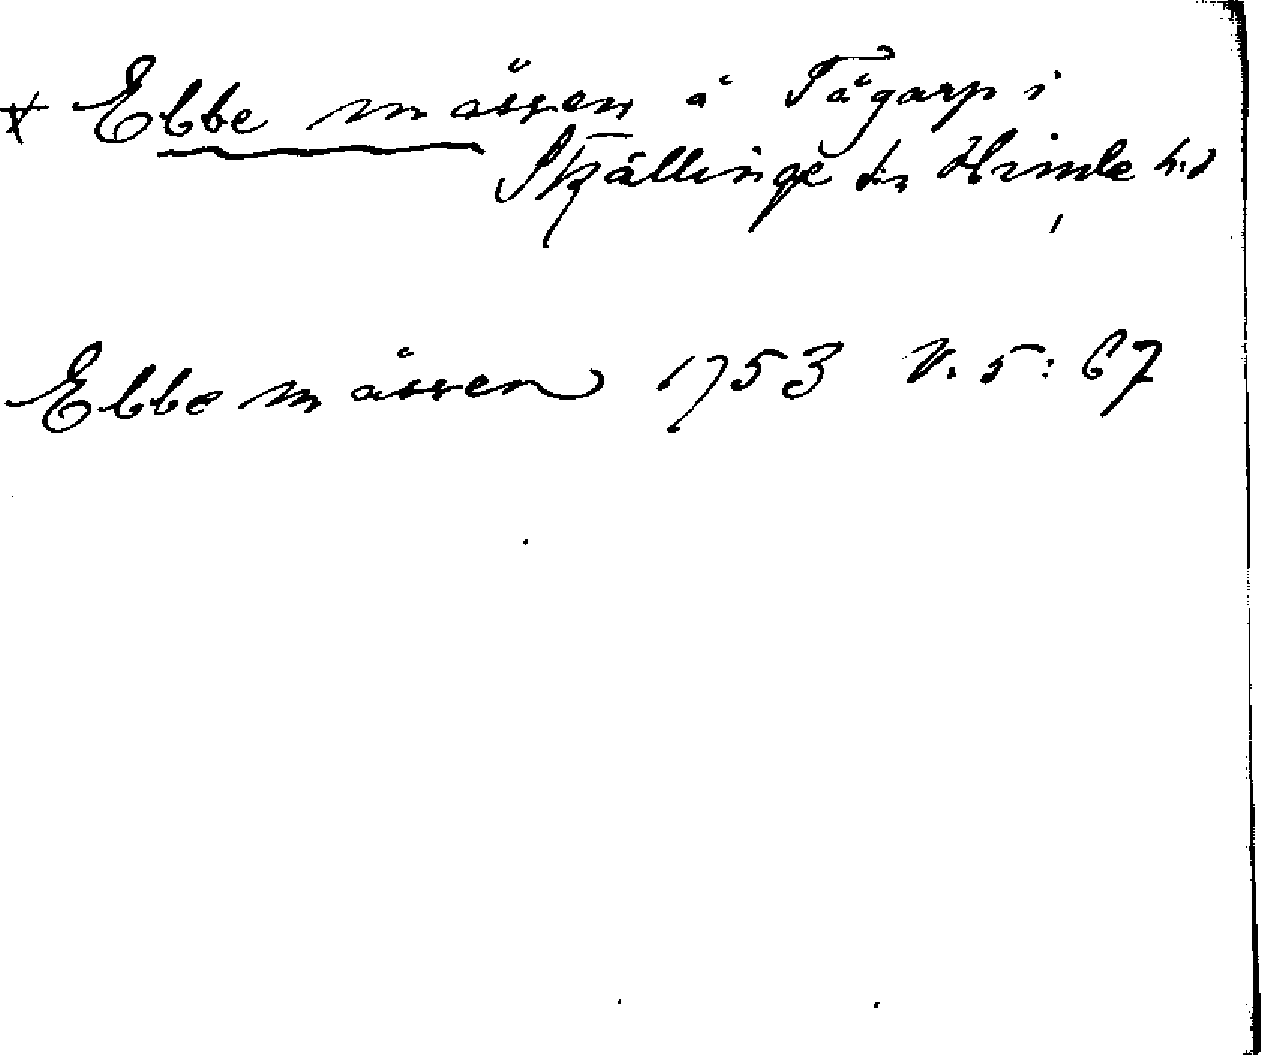 * Ebbe måssen å Tågarp i
Skjällinge sn Himle hd
Ebbe måssen 1753 V. 5: 67